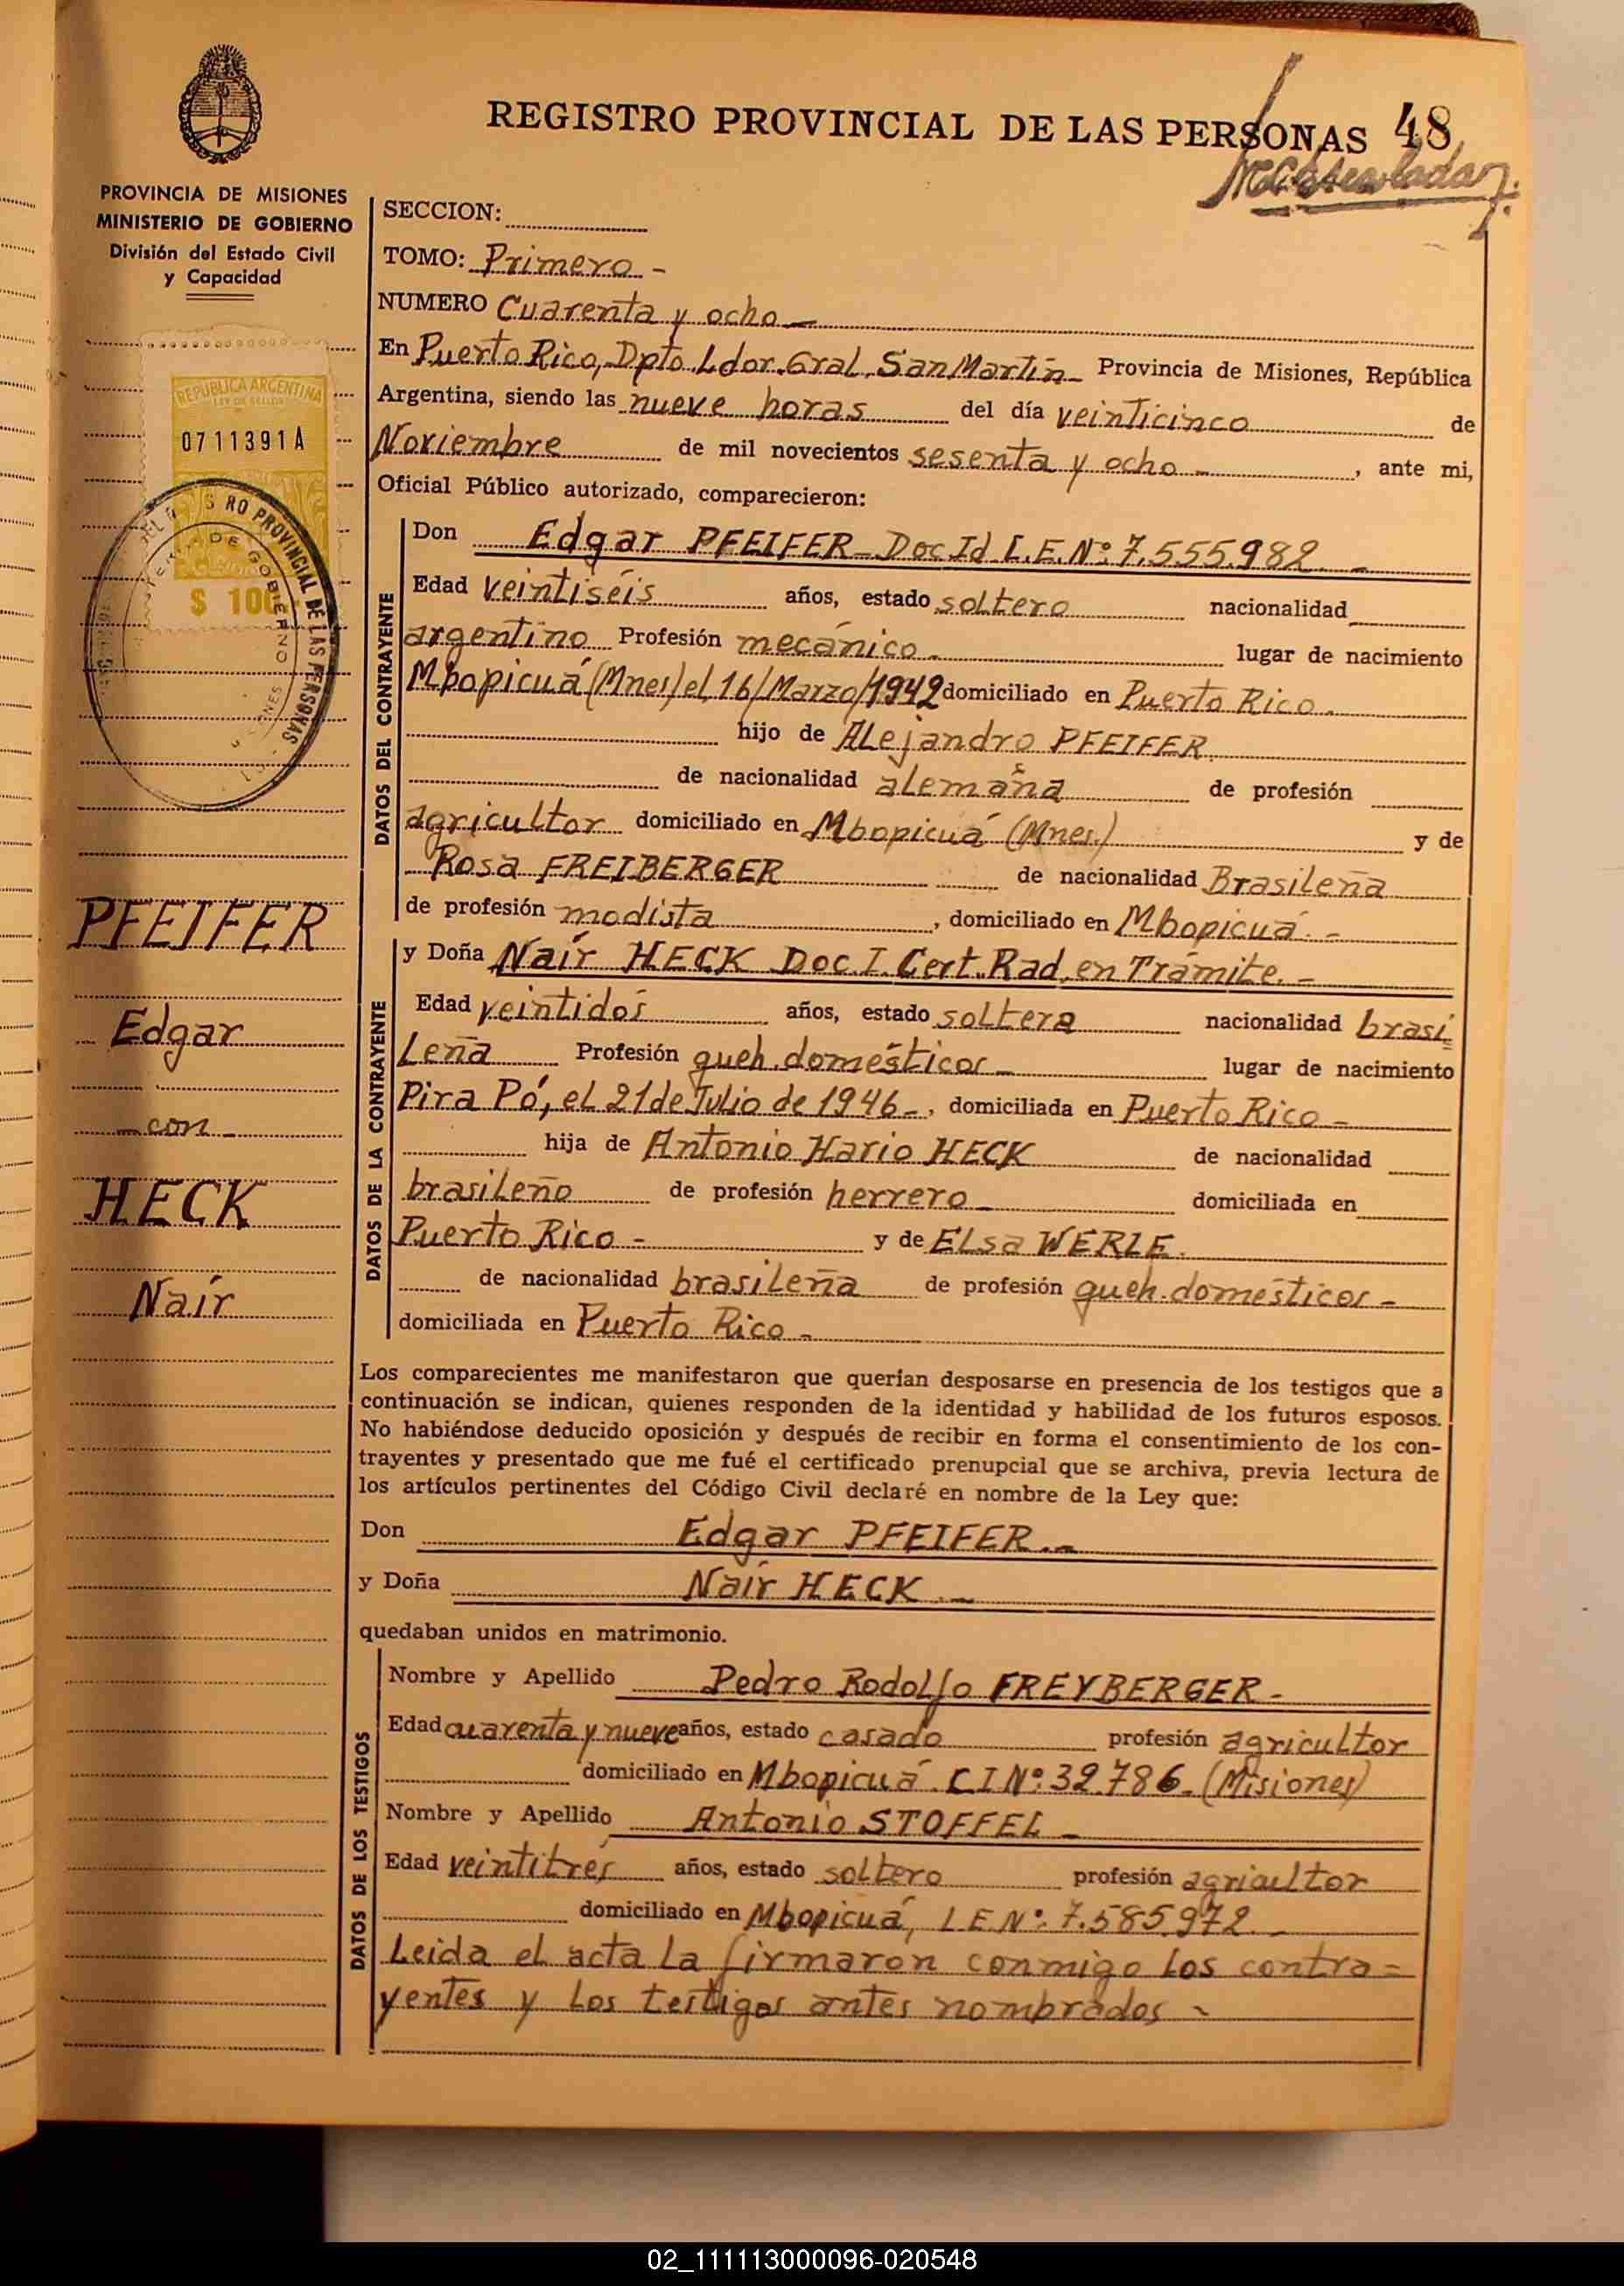 REGISTRO PROVINCIAL DE LAS PERSONAS 48
PROVINCIA DE MISIONES
MINISTERIO DE GOBIERNO
División del Estado Civil
y Capacidad
REPUBLICA ARGENTINA
LEY DE SELLOS
0711391A
$ 100
RO PROVINCIAL DE LAS PERSONAS
DE GOBIERNO
PFEIFER
Edgar
- con -
HECK
Naír
SECCION:
TOMO: Primero -
NUMERO Cuarenta y ocho -
En Puerto Rico, Dpto Ldor. Gral. San Martín - Provincia de Misiones, República
Argentina, siendo las nueve horas del día veinticinco de
Noviembre de mil novecientos sesenta y ocho - , ante mi,
Oficial Público autorizado, comparecieron:
DATOS DEL CONTRAYENTE
Don Edgar PFEIFER - Doc Id L.E. Nº: 7.555.982. -
Edad veintiséis años, estado soltero nacionalidad
argentino Profesión mecánico - lugar de nacimiento
Mbopicuá (Mnes) el 16/Marzo/1942 domiciliado en Puerto Rico. -
hijo de Alejandro PFEIFER
de nacionalidad alemana de profesión
agricultor domiciliado en Mbopicuá (Mnes.) y de
Rosa FREIBERGER de nacionalidad Brasileña
de profesión modista , domiciliado en Mbopicuá. -
DATOS DE LA CONTRAYENTE
y Doña Naír HECK Doc. I. Cert. Rad. en Trámite. -
Edad veintidós años, estado soltera nacionalidad brasi
leña Profesión queh. domésticos - lugar de nacimiento
Pira Pó, el 21 de Julio de 1946 -, domiciliada en Puerto Rico -
hija de Antonio Hario HECK de nacionalidad
brasileño de profesión herrero - domiciliada en
Puerto Rico - y de Elsa WERLE.
de nacionalidad brasileña de profesión queh. domésticos -
domiciliada en Puerto Rico -
Los comparecientes me manifestaron que querían desposarse en presencia de los testigos que a
continuación se indican, quienes responden de la identidad y habilidad de los futuros esposos.
No habiéndose deducido oposición y después de recibir en forma el consentimiento de los con-
trayentes y presentado que me fué el certificado prenupcial que se archiva, previa lectura de
los artículos pertinentes del Código Civil declaré en nombre de la Ley que:
Don Edgar PFEIFER. -
y Doña Naír HECK. -
quedaban unidos en matrimonio.
DATOS DE LOS TESTIGOS
Nombre y Apellido Pedro Rodolfo FREYBERGER -
Edad cuarenta y nueve años, estado casado profesión agricultor
domiciliado en Mbopicuá. C I Nº: 32.786 - (Misiones)
Nombre y Apellido Antonio STOFFEL -
Edad veintitrés años, estado soltero profesión agricultor
domiciliado en Mbopicuá, L E Nº: 7.585.972. -
Leida el acta la firmaron conmigo los contra=
yentes y los testigos antes nombrados -
02_111113000096-020548